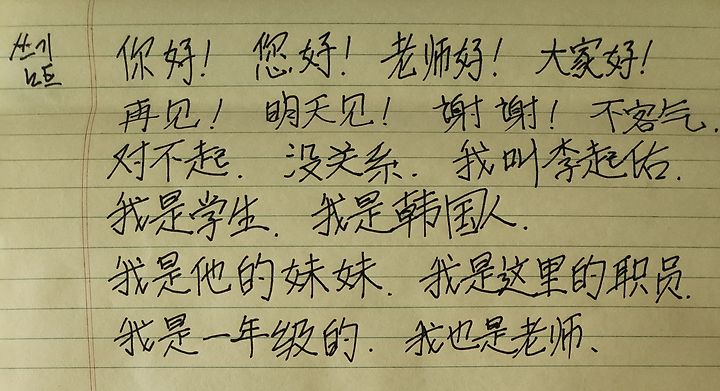 쓰기
노트
你好！ 您好！ 老师好！ 大家好！
再见！ 明天见！ 谢谢！ 不客气.
对不起. 没关系. 我叫李起佑.
我是学生. 我是韩国人.
我是他的妹妹. 我是这里的职员.
我是一年级的. 我也是老师、